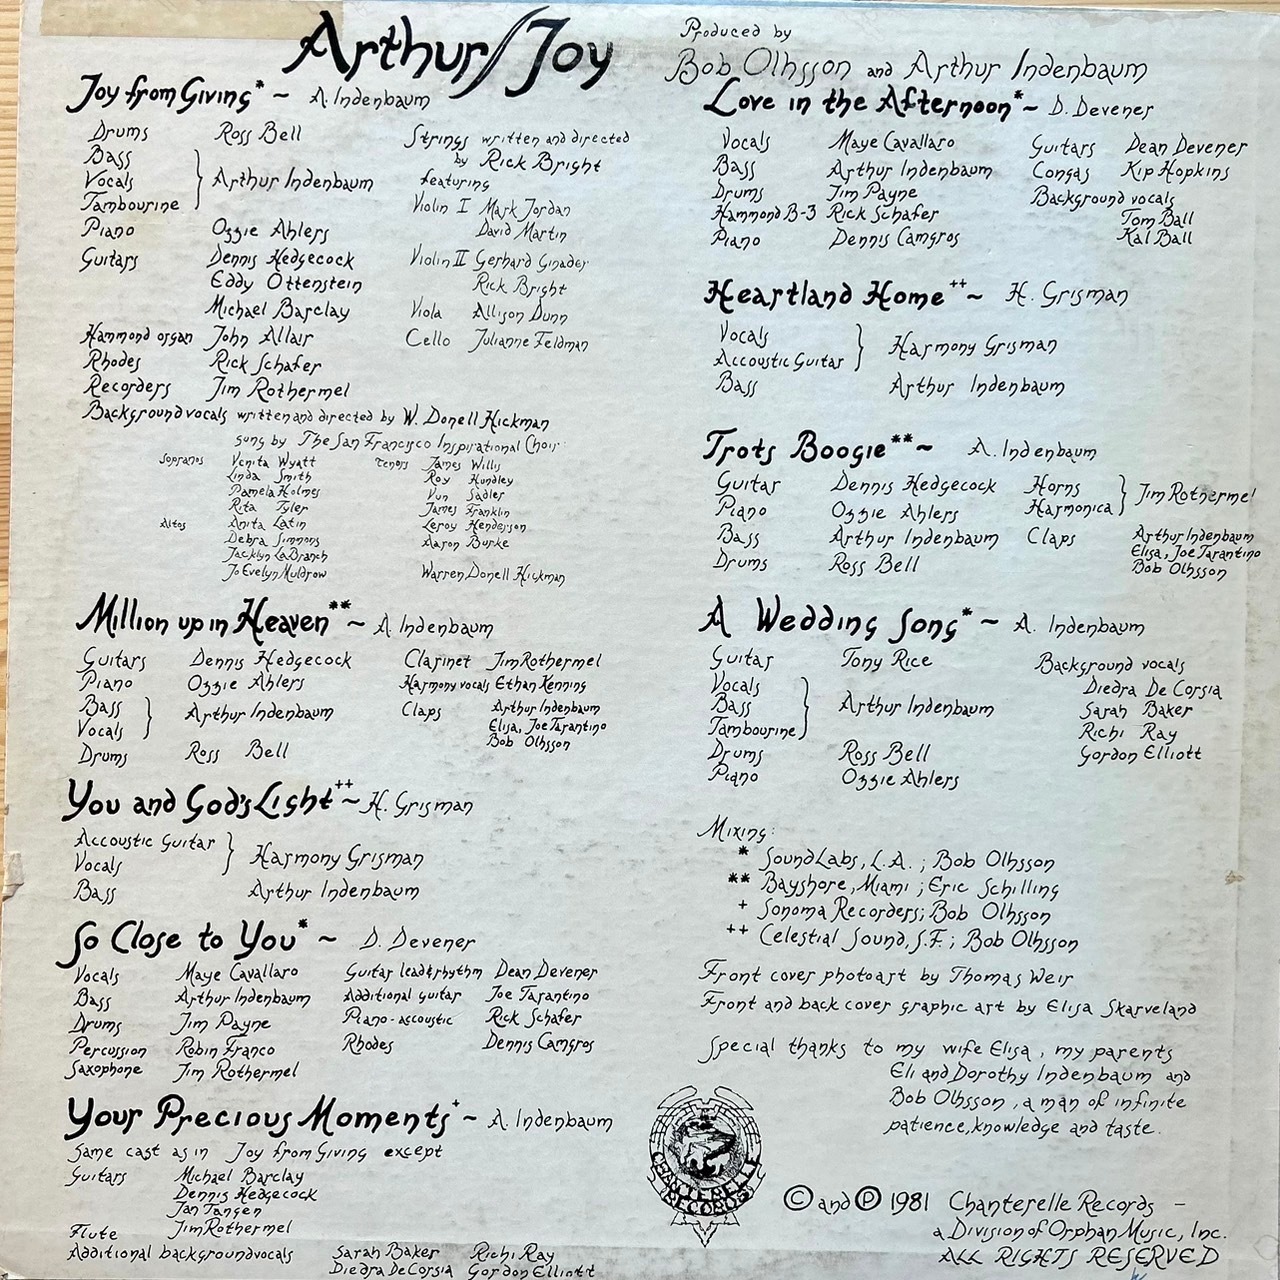 Arthur/Joy
Produced by
Bob Olhsson and Arthur Indenbaum
Joy from Giving* ~ A. Indenbaum
Drums Ross Bell
Bass
Vocals
Tambourine
} Arthur Indenbaum
Piano Ozzie Ahlers
Guitars Dennis Hedgecock
Eddy Ottenstein
Michael Barclay
Hammond organ John Allair
Rhodes Rick Schafer
Recorders Jim Rothermel
Strings written and directed
by Rick Bright
featuring
Violin I Mark Jordan
David Martin
Violin II Gerhard Ginader
Rick Bright
Viola Allison Dunn
Cello Julianne Feldman
Background vocals written and directed by W. Donell Hickman
sung by The San Francisco Inspirational Choir:
Sopranos Venita Wyatt
Linda Smith
Pamela Holmes
Rita Tyler
Altos Anita Latin
Debra Simmons
Jacklyn LaBranch
Jo Evelyn Muldrow
Tenors James Willis
Roy Hundley
Vun Sadler
James Franklin
Leroy Henderson
Aaron Burke
Warren Donell Hickman
Million up in Heaven** ~ A. Indenbaum
Guitars Dennis Hedgecock
Piano Ozzie Ahlers
Bass
Vocals
} Arthur Indenbaum
Drums Ross Bell
Clarinet Jim Rothermel
Harmony vocals Ethan Kenning
Claps Arthur Indenbaum
Elisa, Joe Tarantino
Bob Olhsson
You and God's Light++ ~ H. Grisman
Accoustic Guitar
Vocals
} Harmony Grisman
Bass Arthur Indenbaum
So Close to You* ~ D. Devener
Vocals Maye Cavallaro
Bass Arthur Indenbaum
Drums Jim Payne
Percussion Robin Franco
Saxophone Jim Rothermel
Guitar lead & rhythm Dean Devener
Additional guitar Joe Tarantino
Piano-accoustic Rick Schafer
Rhodes Dennis Camgros
Your Precious Moments+ ~ A. Indenbaum
Same cast as in Joy from Giving except
Guitars Michael Barclay
Dennis Hedgecock
Jan Tangen
Flute Jim Rothermel
Additional background vocals Sarah Baker Richi Ray
Diedra De Corsia Gordon Elliott
Love in the Afternoon* ~ D. Devener
Vocals Maye Cavallaro
Bass Arthur Indenbaum
Drums Jim Payne
Hammond B-3 Rick Schafer
Piano Dennis Camgros
Guitars Dean Devener
Congas Kip Hopkins
Background vocals
Tom Ball
Kal Ball
Heartland Home++ ~ H. Grisman
Vocals
Accoustic Guitar
} Harmony Grisman
Bass Arthur Indenbaum
Trots Boogie** ~ A. Indenbaum
Guitar Dennis Hedgecock
Piano Ozzie Ahlers
Bass Arthur Indenbaum
Drums Ross Bell
Horns
Harmonica
} Jim Rothermel
Claps Arthur Indenbaum
Elisa, Joe Tarantino
Bob Olhsson
A Wedding Song* ~ A. Indenbaum
Guitar Tony Rice
Vocals
Bass
Tambourine
} Arthur Indenbaum
Drums Ross Bell
Piano Ozzie Ahlers
Background vocals
Diedra De Corsia
Sarah Baker
Richi Ray
Gordon Elliott
Mixing:
* SoundLabs, L.A.; Bob Olhsson
** Bayshore, Miami; Eric Schilling
+ Sonoma Recorders; Bob Olhsson
++ Celestial Sound, S.F.; Bob Olhsson
Front cover photoart by Thomas Weir
Front and back cover graphic art by Elisa Skarveland
Special thanks to my wife Elisa, my parents
Eli and Dorothy Indenbaum and
Bob Olhsson, a man of infinite
patience, knowledge and taste.
CHANTERELLE
RECORDS
© and ℗ 1981 Chanterelle Records –
a Division of Orphan Music, Inc.
ALL RIGHTS RESERVED